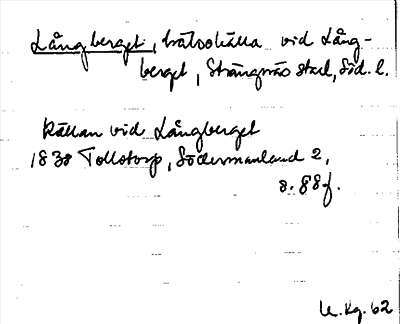 Långberget, hälsokälla vid Lång-
berget, Strängnäs stad, Söd. l.
Källan vid Långberget
1838 Tollstorp, Södermanland 2,
s. 88 f.
U. Kg. 62